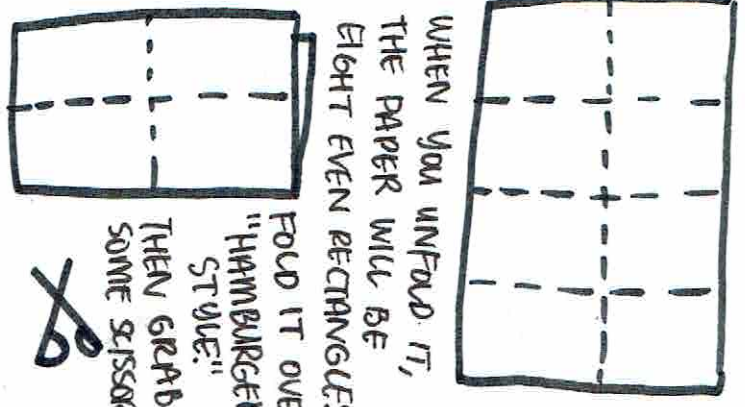 WHEN YOU UNFOLD IT,
THE PAPER WILL BE
EIGHT EVEN RECTANGLES
FOLD IT OVE
"HAMBURGER
STYLE."
THEN GRAB
SOME SCISSOR